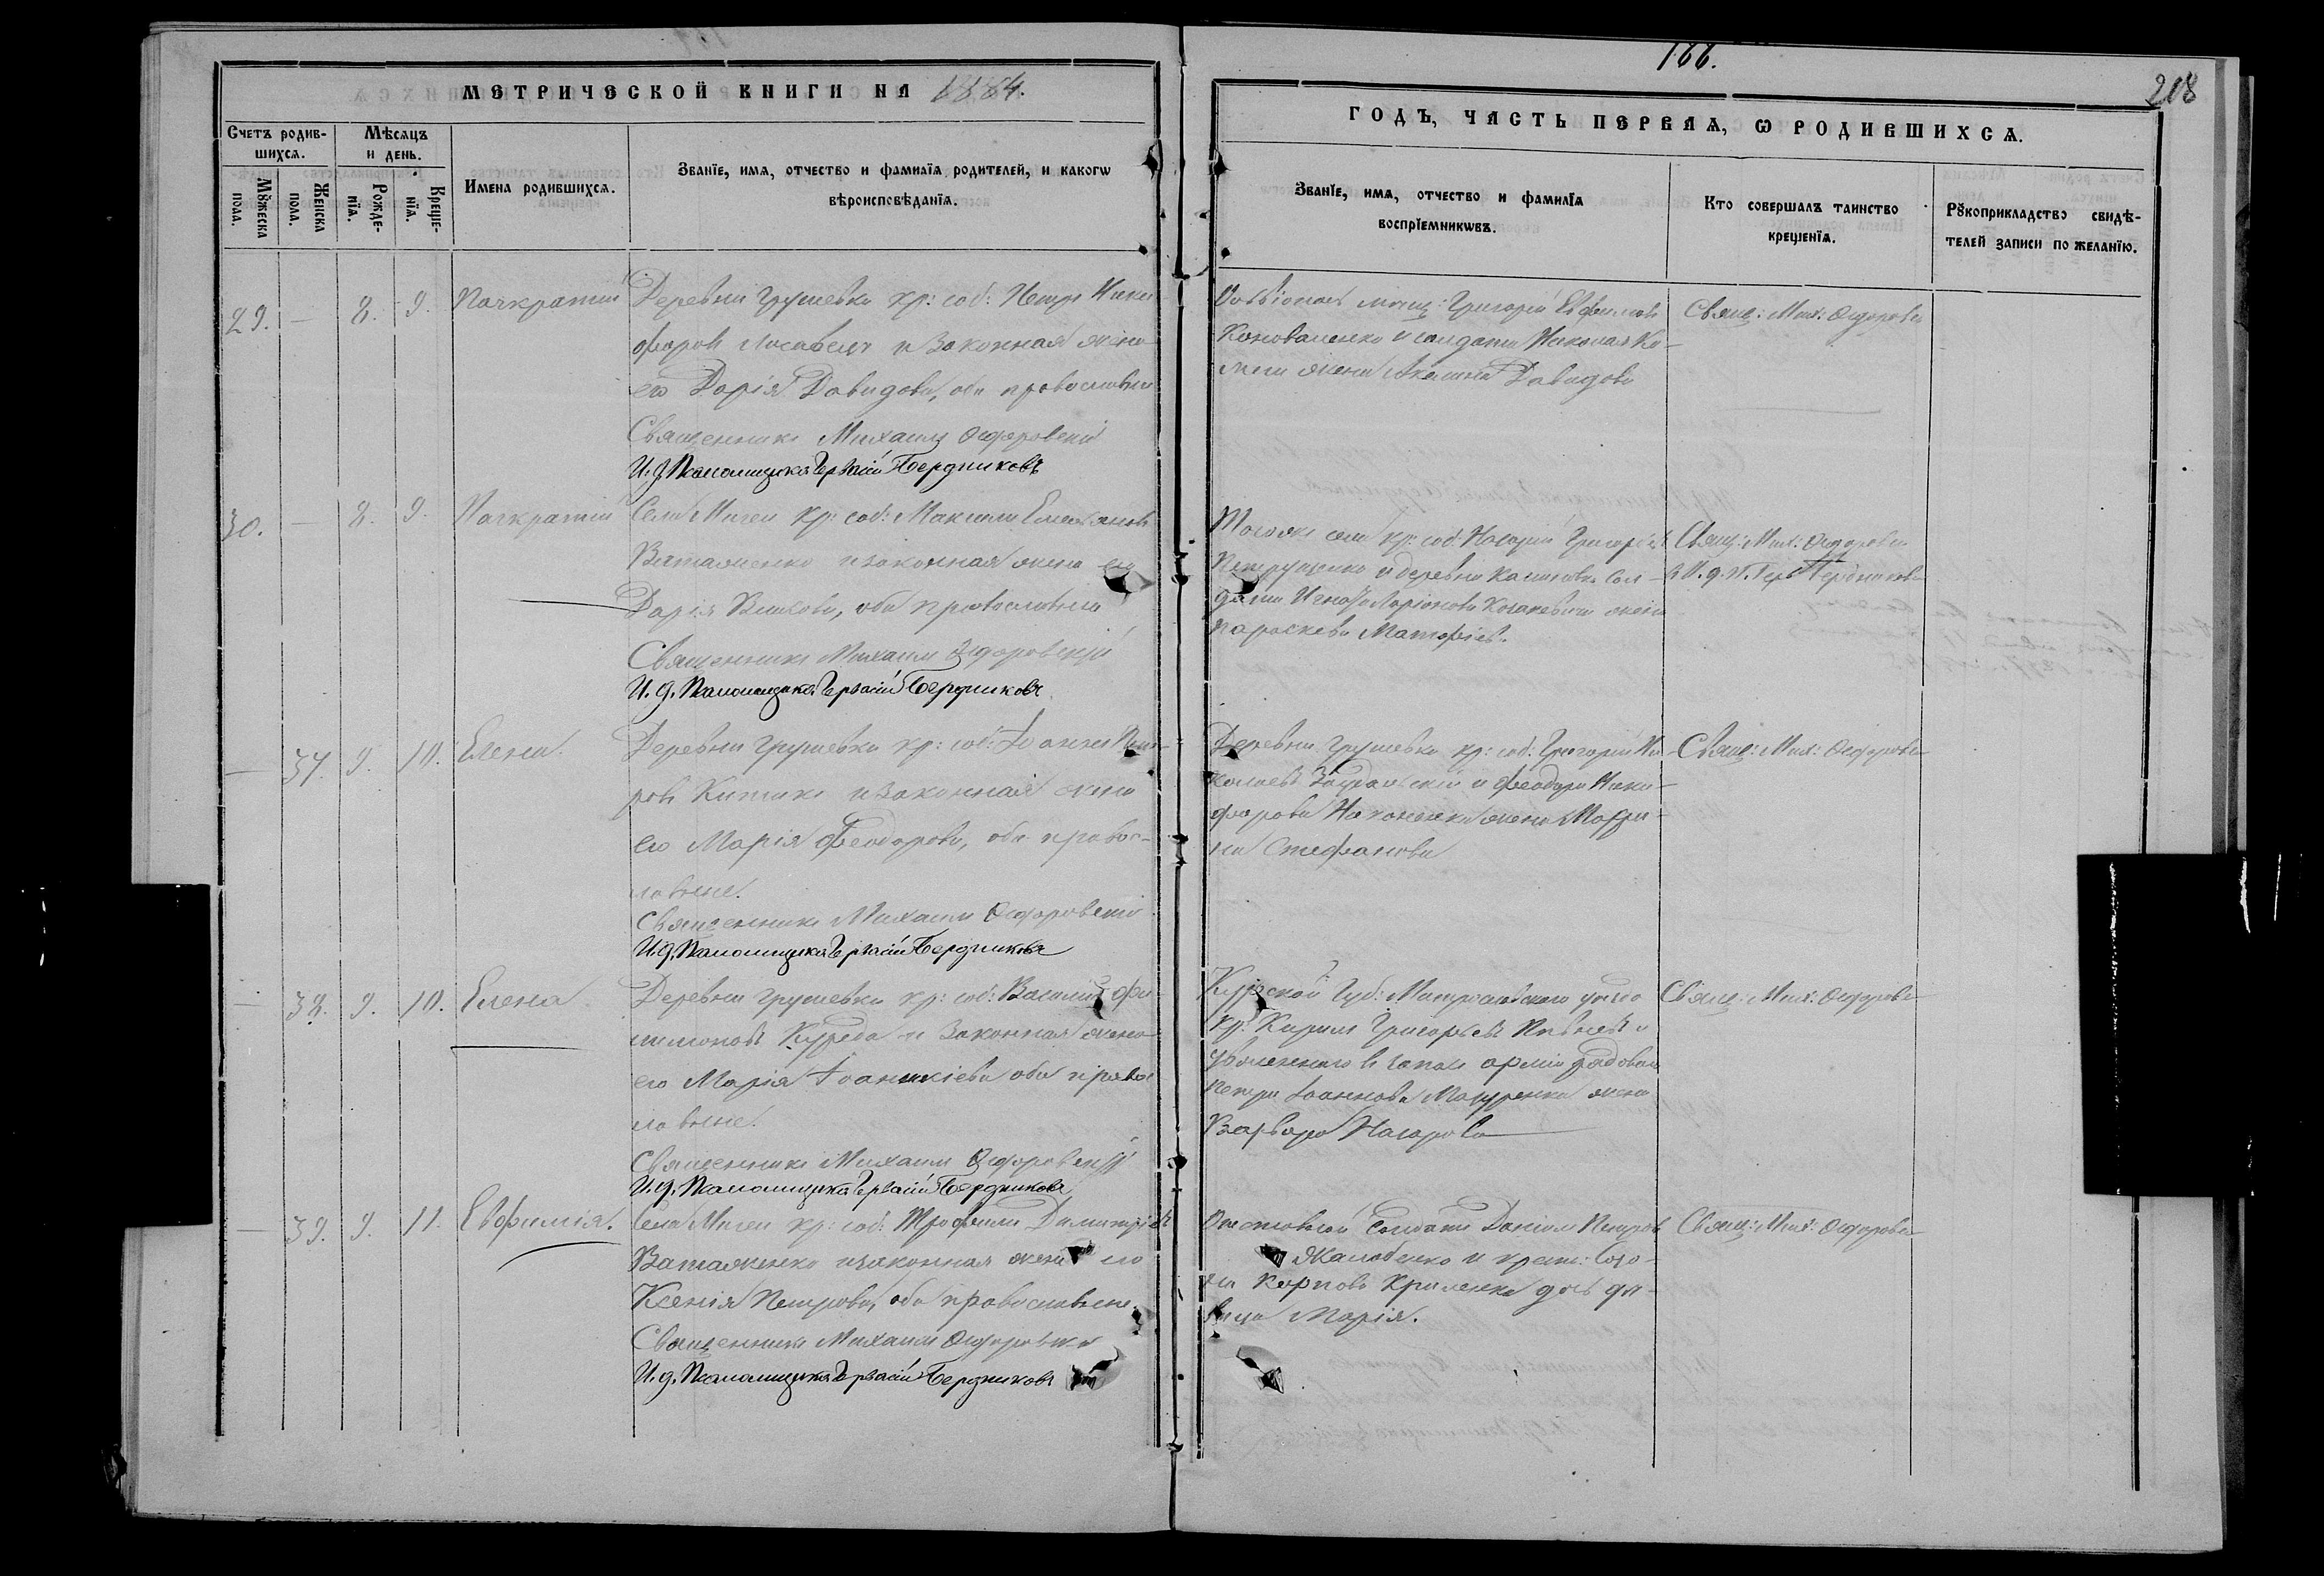 166.
218
МЕТРИЧЕСКОЙ КНИГИ НА 1884.
ГОДЪ, ЧАСТЬ ПЕРВАЯ, Ѡ РОДИВШИХСѦ.
Счетъ родив-
шихсѧ.
Мѣсѧцъ
и день.
Мꙋжеска
пола.
Женска
пола.
Рожде-
нїѧ.
Креще-
нїѧ.
Имена родившихсѧ.
Званїе, имѧ, отчество и фамилїѧ родителей, и какогѡ
вѣроисповѣданїѧ.
Званїе, имѧ, отчество и фамилїѧ
воспрїемникѡвъ.
Кто совершалъ таинство
крещенїѧ.
Рꙋкоприкладство свидѣ-
телей записи по желанїю.
29. — 8. 9. Панкратій
Деревни Грушевки кр: соб: Петръ Ники
форовъ и законная жена
его Дарія Давидова, оба православны
Священникъ Михаилъ Ѳедоровскій
И. д. Псаломщика Гервасій Бердниковъ
мѣщ: Григорій Евфимовъ
Коноваленко и солдата Николая Ко-
жена Акилина Давидова
Свящ: Мих: Ѳедоровскій
30. — 8. 9. Панкратій
Села Мигеи кр: соб: Максимъ Емельяновъ
Ватаженко и законная жена его
Дарія, оба православные
Священникъ Михаилъ Ѳедоровскій
И. д. Псаломщика Гервасій Бердниковъ
Тогоже села кр: соб: Назарій Григорьевъ
Петрущенко и деревни сол-
дата Ларіонова жена
Параскева Матфіева.
Свящ: Мих: Ѳедоровскій
и И. д. П. Герв: Бердниковъ
— 37. 9. 10. Елена.
Деревни Грушевки кр: соб: Іоаннъ Пет-
ровъ и законная жена
его Марія Феодорова, оба правос-
лавные.
Священникъ Михаилъ Ѳедоровскій
И. д. Псаломщика Гервасій Бердниковъ
Деревни Грушевки кр: соб: Григорій Ни-
колаевъ и Феодора Ники-
форова Наконечнаго жена Матро-
на Стефанова
Свящ: Мих: Ѳедоровскій
— 38. 9. 10. Елена
Деревни Грушевки кр: соб: Василій Фи-
лимоновъ и законная жена
его Марія Іоаникіева оба правос
лавные.
Священникъ Михаилъ Ѳедоровскій
И. д. Псаломщика Гервасій Бердниковъ
Курской Губ: уѣзда
кр: Кирилъ Григорьевъ и
уволеннаго въ запасъ арміи рядоваго
Петра Іоаннова Мазуренка жена
Варвара Назарова
Свящ: Мих: Ѳедоровскій
— 39. 9. 11. Евфимія.
Села Мигеи кр: соб: Трофимъ Димитріевъ
Ватаженко и законная жена его
Ксенія Петрова, оба православные.
Священникъ Михаилъ Ѳедоровскій
И. д. Псаломщика Гервасій Бердниковъ
Отставной солдатъ Даніилъ Петровъ
и крест: Созо-
на Карпова дочь дѣ-
вица Марія.
Свящ: Мих: Ѳедоровскій